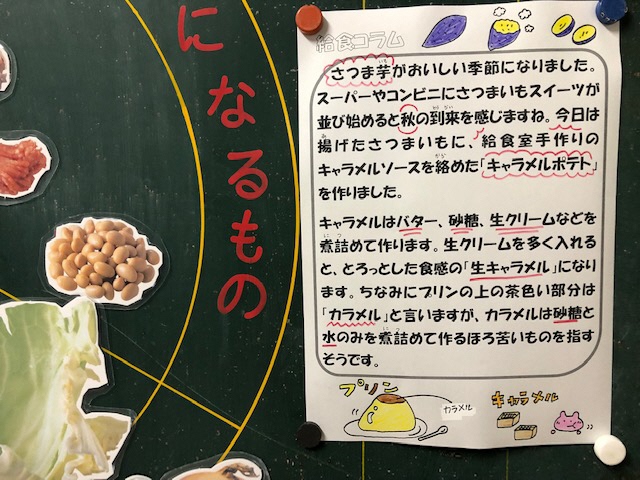 になるもの
給食コラム
さつま芋がおいしい季節になりました。
スーパーやコンビニにさつまいもスイーツが
並び始めると秋の到来を感じますね。今日は
揚げたさつまいもに、給食室手作りの
キャラメルソースを絡めた「キャラメルポテト」
を作りました。
キャラメルはバター、砂糖、生クリームなどを
煮詰めて作ります。生クリームを多く入れる
と、とろっとした食感の「生キャラメル」になり
ます。ちなみにプリンの上の茶色い部分は
「カラメル」と言いますが、カラメルは砂糖と
水のみを煮詰めて作るほろ苦いものを指す
そうです。
プリン
カラメル
キャラメル